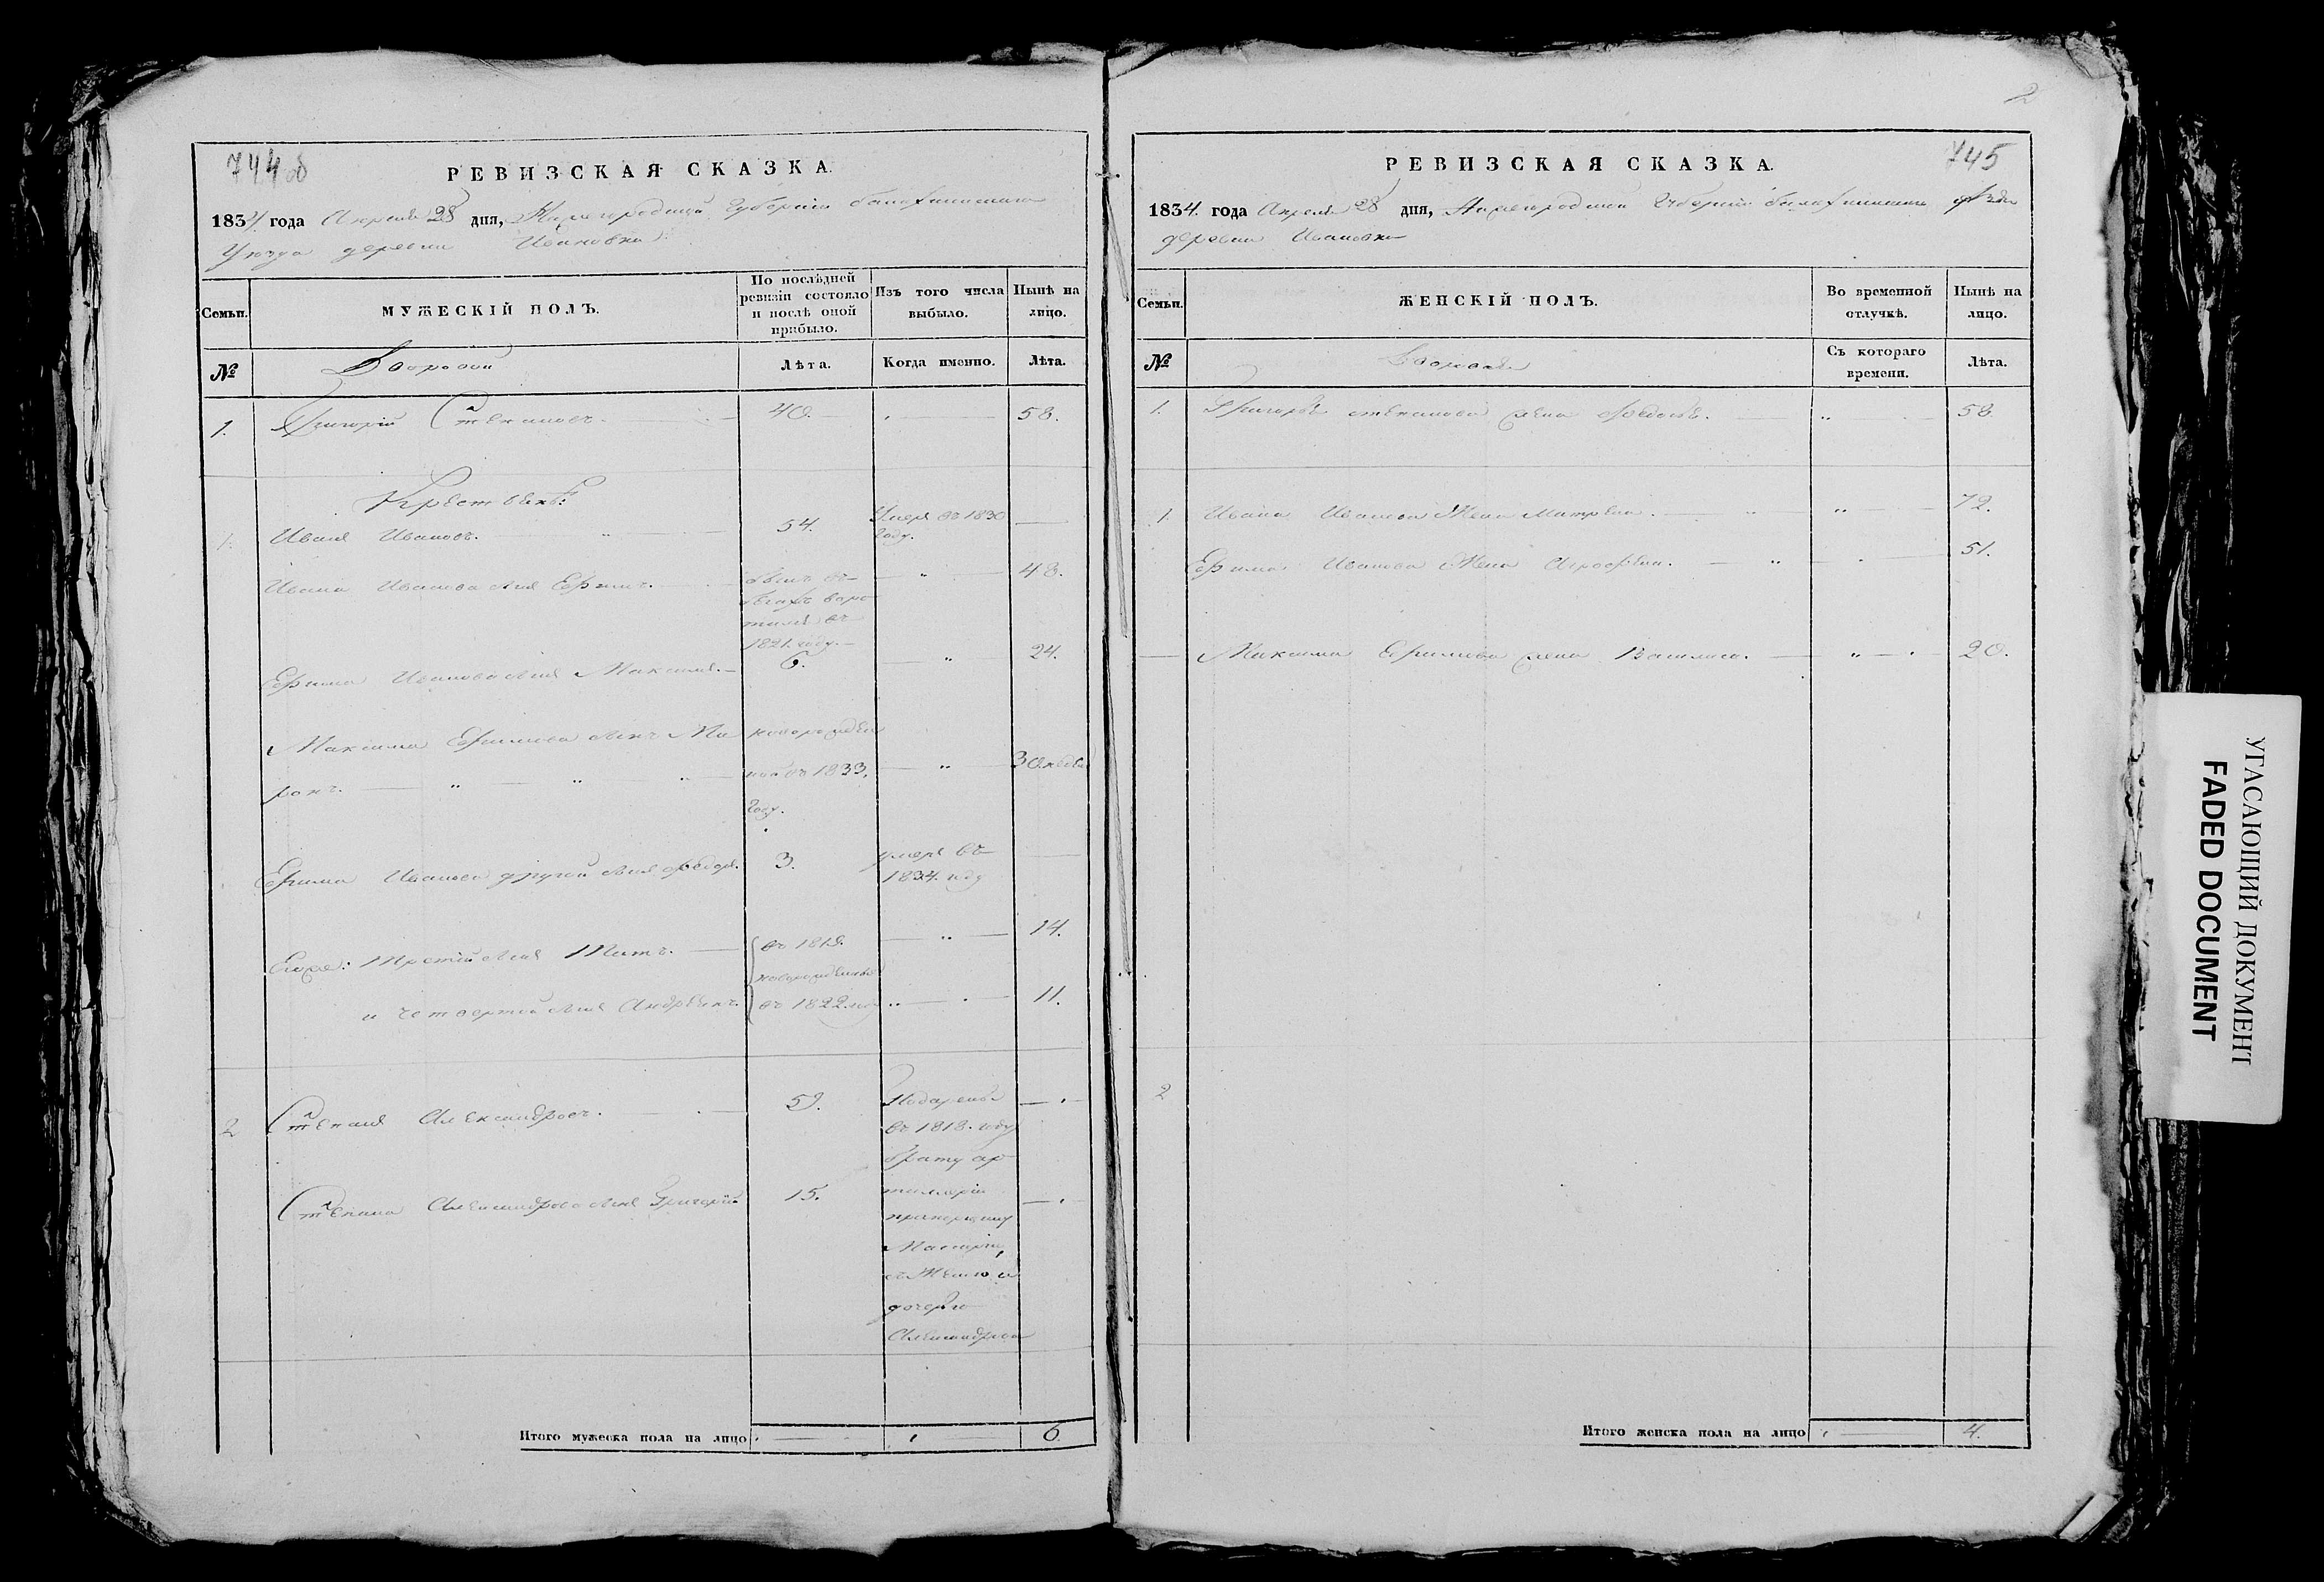 744 об
РЕВИЗСКАЯ СКАЗКА.
1834 года Апреля 28 дня, Нижегородской Губернии Балахнинскаго
Уезда деревни Ивановки
Семьи.
МУЖЕСКІЙ ПОЛЪ.
По послѣдней ревизіи состояло и послѣ оной прибыло.
Изъ того числа выбыло.
Нынѣ на лицо.
№
Дворовой
Лѣта.
Когда именно.
Лѣта.
1. Григорій Степановъ. 40. 58.
Крестьянѣ:
1. Иванъ Ивановъ. 54. Умеръ въ 1830
году.
Ивана Иванова сынъ Ефимъ. былъ въ 48.
бегахъ воро
тился въ
1821. году.
Ефима Иванова сынъ Максимъ. 6. 24.
Максима Ефимова сынъ Ми новорожден
ронъ. ной въ 1833. 30. недель
году.
Ефима Иванова другой сынъ Федоръ. 3. умеръ въ
1834. году
Егоже: третій сынъ Титъ. въ 1819. 14.
новорожденные
и четвертой сынъ Андреянъ. въ 1822. 11.
2 Степанъ Александровъ. 59. Подарены
въ 1818. году
брату ар
Степана Александрова сынъ Григорій 15. тиллеріи
прапорщику
съ женою и
дочерью
Александрова
Итого мужеска пола на лицо 6.
2
745
РЕВИЗСКАЯ СКАЗКА.
1834. года Апреля 28 дня, Нижегородской Губерніи Балахнинскаго уѣзда
деревни Ивановки
Семьи.
ЖЕНСКІЙ ПОЛЪ.
Во временной отлучкѣ.
Нынѣ на лицо.
№
Дворовыя
Съ котораго времени.
Лѣта.
1. Григорья Степанова жена Федосья. 58.
1. Ивана Иванова жена Матрена. 72.
Ефима Иванова жена Агрофена. 51.
Максима Ефимова жена Василиса. 20.
2
Итого женска пола на лицо 4.
УГАСАЮЩИЙ ДОКУМЕНТ
FADED DOCUMENT